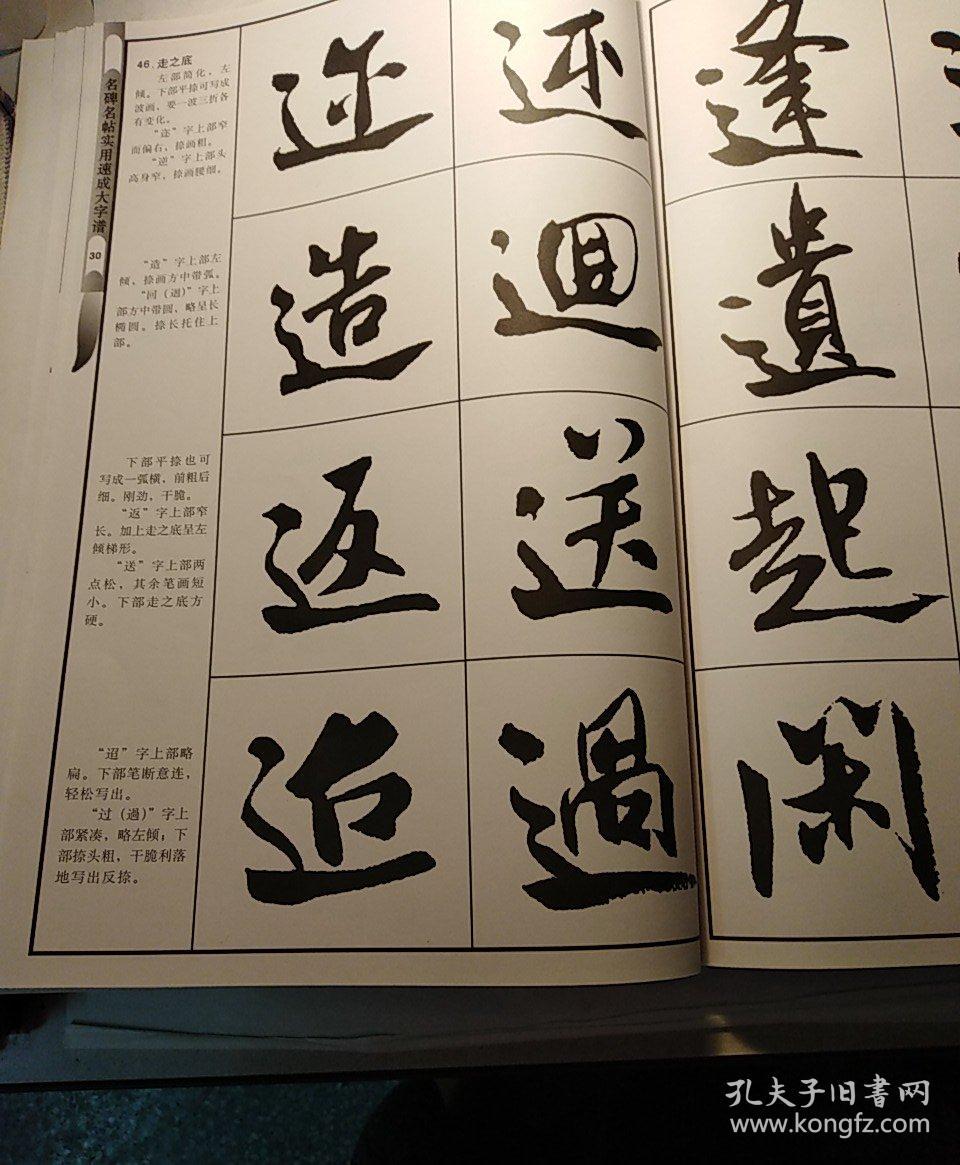 名碑名帖实用速成大字谱
30
46、走之底
左部简化，左
倾。下部平捺可写成
波画，要一波三折各
有变化。
“迩”字上部窄
而偏右，捺画粗。
“逆”字上部头
高身窄，捺画腰细。
“造”字上部左
倾、捺画方中带弧。
“回（迴）”字上
部方中带圆，略呈长
椭圆。捺长托住上
部。
下部平捺也可
写成一弧横，前粗后
细。刚劲，干脆。
“返”字上部窄
长。加上走之底呈左
倾梯形。
“送”字上部两
点松，其余笔画短
小。下部走之底方
硬。
“迢”字上部略
扁。下部笔断意连，
轻松写出。
“过（過）”字上
部紧凑，略左倾；下
部捺头粗，干脆利落
地写出反捺。
迩 逆 逢
造 迴 遗
返 送 起
迢 過 闲
孔夫子旧书网
www.kongfz.com